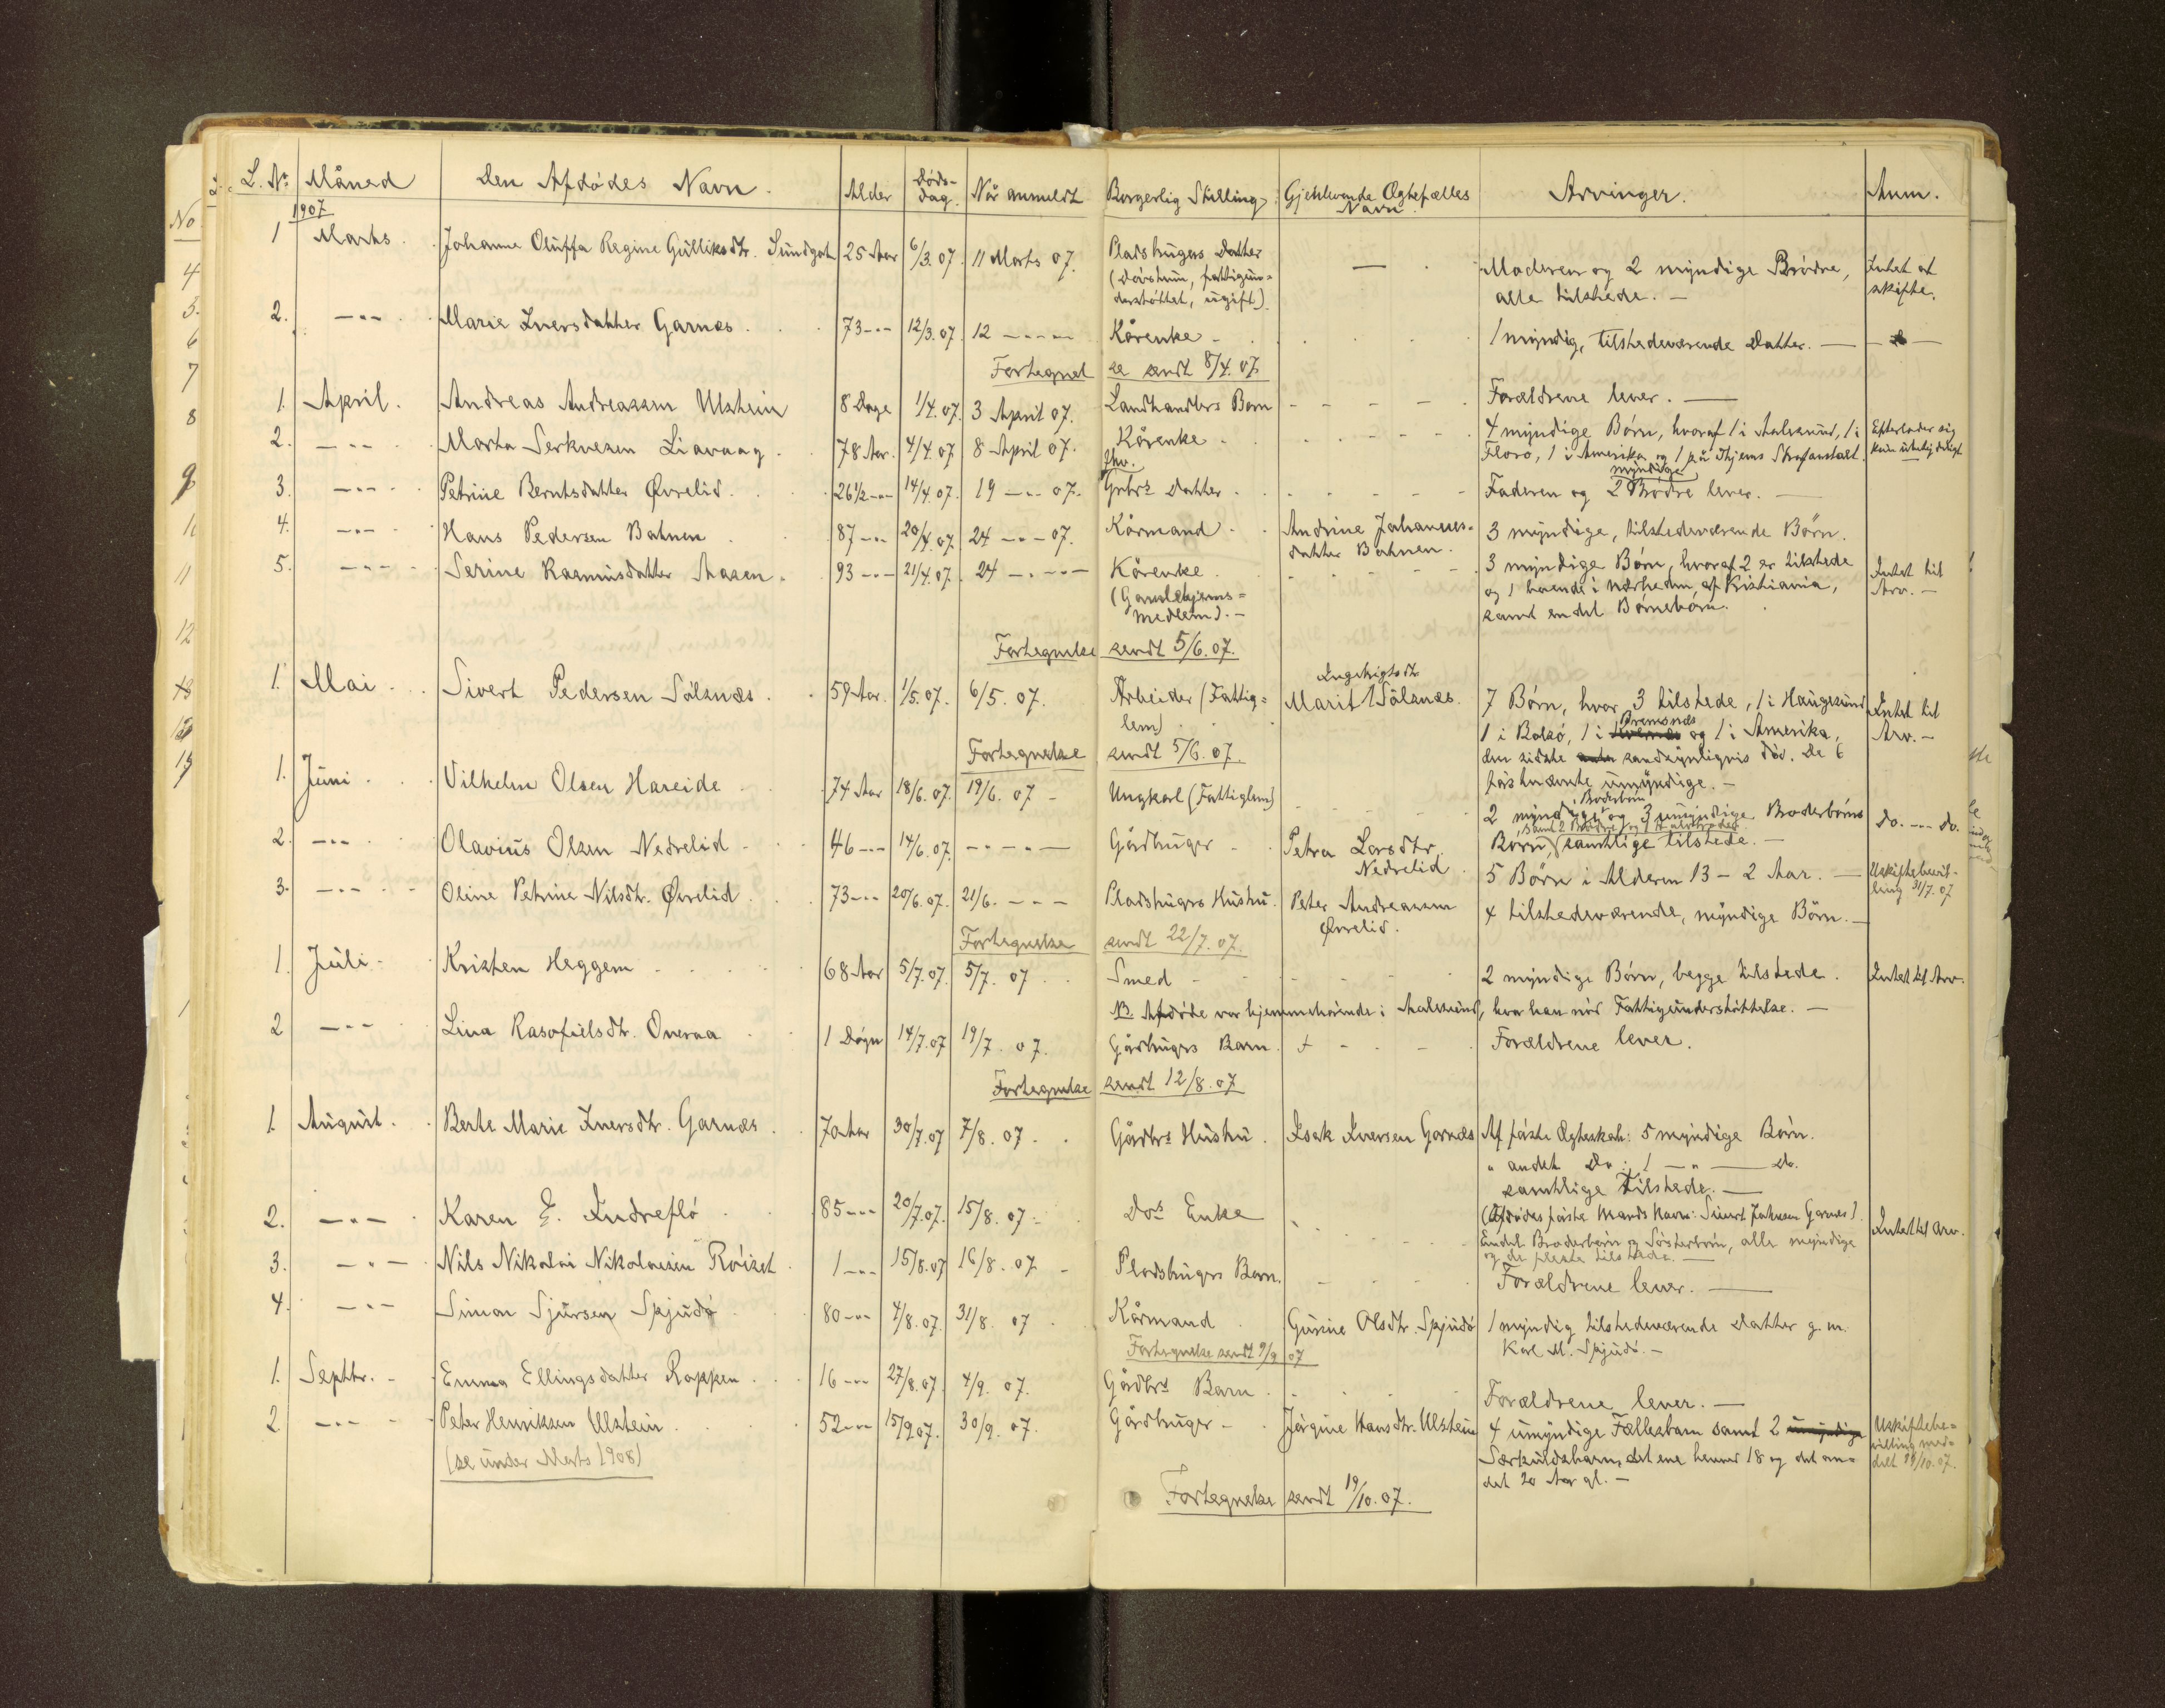 L. Nr. Måned Den Afdødes Navn. Alder Døds-dag. Når anmeldt Borgerlig Stilling. Gjenlevende Ægtefælles Navn. Arvinger. Anm.
1907
1 Marts. Johanne Oluffa Regine Gulliksdtr. Sundgot 25 Aar 6/3.07. 11 Marts 07. Pladsbrugers Datter — Moderen og 2 myndige Brødre, Intet at
(Døvstum, fattigun= alle tilstede. — skifte.
derstøttet, ugift).
2. —"— Marie Iversdatter Garnæs 73 —"— 12/3.07. 12 —"—"— Kårenke — 1 myndig, tilstedeværende Datter. — —"—
Fortegnel se sendt 8/4.07.
1. April. Andreas Andreassen Ulstein 8 Dage 1/4.07. 3 April 07. Landhandlers Barn Forældrene lever. —
2. —"— Marta Serkvesen Liavaag 78 Aar. 4/4.07. 8 April 07. Kårenke 4 myndige Børn, hvoraf 1 i Aalesund, 1 i Efterlader sig
fhv. Florø, 1 i Amerika og 1 på Thjems Strafanstalt. kun ubetydeligt
3. —"— Petrine Berntsdatter Øvrelid. 26 1/2 —"— 14/4.07. 19 —"— 07. Grbrs Datter Faderen og 2 myndige Brødre lever. —
4. —"— Hans Pedersen Botnen 87 —"— 20/4.07. 24 —"— 07. Kårmand Andrine Johannes= 3 myndige, tilstedeværende Børn.
datter Botnen.
5. —"— Serine Rasmusdatter Aasen 93 —"— 21/4.07. 24 —"— Kårenke 3 myndige Børn, hvoraf 2 er tilstede Intet til
(Gamlehjems= og 1 boende i nærheden af Kristiania, Arv. —
medlem). — samt endel Børnebørn.
Fortegnelse sendt 5/6.07.
Ingebrigtsdtr.
1. Mai Sivert Pedersen Sølsnæs 59 Aar. 1/5.07. 6/5.07. Arbeider (Fattig= Marit Sølsnæs. 7 Børn, hvor 3 tilstede, 1 i Haugesund Intet til
lem) 1 i Bolsø, 1 i Bremsnæs og 1 i Amerika, Arv. —
Fortegnelse sendt 5/6.07. den sidste sandsynligvis død. De 6
førstnævnte umyndige. —
1. Juni Vilhelm Olsen Hareide 74 Aar 18/6.07. 19/6.07 — Ungkarl (Fattiglem) 2 myndige Broderbørn og 3 umyndige Broderbørns Do. —"— Do.
samt 2 Brødre og 1
2. —"— Olavius Olsen Nedrelid 46 —"— 14/6.07. —"—"— Gårdbruger Petra Larsdtr. Børn, samtlige tilstede. —
Nedrelid 5 Børn i Alderen 13 – 2 Aar. — Uskiftebevil-
ling 31/7.07
3. —"— Oline Petrine Nilsdtr. Øvrelid 73 —"— 20/6.07. 21/6. —"— Pladsbrugers Hustru. Peter Andreassen 4 tilstedeværende, myndige Børn. —
Øvrelid.
Fortegnelse sendt 22/7.07.
1. Juli Kristen Heggem 68 Aar 5/7.07 5/7.07 Smed 2 myndige Børn, begge tilstede. Intet til Arv.
NB. Afdøde var hjemmehørende i Aalesund, hvor han nød Fattigunderstøttelse. —
2 —"— Lina Rasofielsdtr. Overaa 1 Døgn 14/7.07 19/7.07. Gårdbrugers Barn. Forældrene lever.
Fortegnelse sendt 12/8.07
1. August. Berte Marie Iversdtr. Garnæs 70 Aar 30/7.07 7/8.07. Gårdbrs Hustru. Isak Iversen Garnæs Af første Ægteskab: 5 myndige Børn.
" andet Do: 1 —"— Do.
samtlige tilstede. —
2. —"— Karen E. Indreflø 85 —"— 20/7.07. 15/8.07. Dos Enke (Afdødes første Mands Navn: Sivert Johnsen Garnæs). Intet til Arv.
Endel Broderbørn og Søsterbørn, alle myndige
og de fleste tilstede. —
3. —"— Nils Nikolai Nikolaisen Røiset 1 —"— 15/8.07 16/8.07 — Pladsbrugers Barn. Forældrene lever. —
4. —"— Simon Sjursen Spjudø 80 —"— 4/8.07. 31/8.07 Kårmand Gurine Olsdtr. Spjudø 1 myndig tilstedeværende Datter g. m.
Fortegnelse sendt 9/9 07 Karl M. Spjudø. —
1. Septbr. Emma Ellingsdatter Roppen 16 —"— 27/8.07. 4/9.07. Gårdbrs Barn. Forældrene lever. —
2. —"— Peter Henriksen Ulstein 52 —"— 15/9.07. 30/9.07. Gårdbruger — Jørgine Hansdtr. Ulstein 4 umyndige Fællesbarn samt 2 umyndige Uskiftebe=
(se under Marts 1908) Særkuldsbarn, det ene henved 18 og det an= villing med=
det 20 Aar gl. — delt 29/10.07.
Fortegnelse sendt 19/10.07.